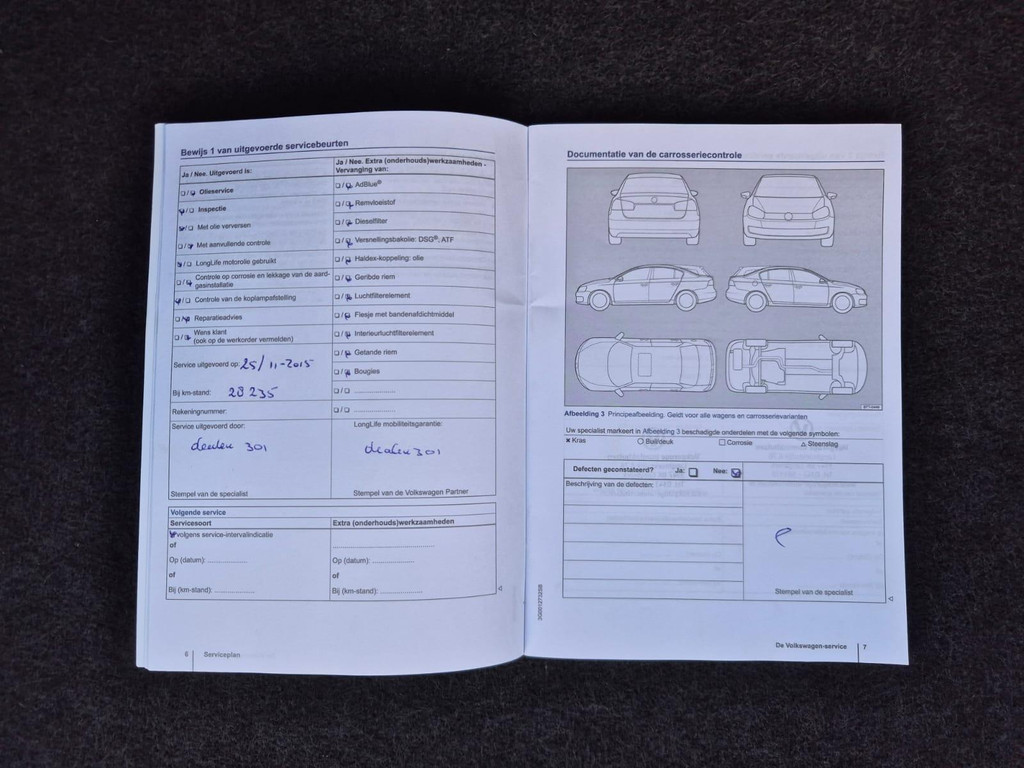 Bewijs 1 van uitgevoerde servicebeurten
Ja / Nee. Uitgevoerd is:
Ja / Nee. Extra (onderhouds)werkzaamheden -
Vervanging van:
Olieservice
AdBlue®
Inspectie
Remvloeistof
Met olie verversen
Dieselfilter
Met aanvullende controle
Versnellingsbakolie: DSG®; ATF
LongLife motorolie gebruikt
Haldex-koppeling: olie
Controle op corrosie en lekkage van de aard-
gasinstallatie
Geribde riem
Controle van de koplampafstelling
Luchtfilterelement
Reparatieadvies
Flesje met bandenafdichtmiddel
Wens klant
(ook op de werkorder vermelden)
Interieurluchtfilterelement
Getande riem
Service uitgevoerd op: 25/11-2015
Bougies
Bij km-stand: 28 235
Rekeningnummer:
Service uitgevoerd door:
LongLife mobiliteitsgarantie:
dealer 301
dealer 301
Stempel van de specialist
Stempel van de Volkswagen Partner
Volgende service
Servicesoort
Extra (onderhouds)werkzaamheden
volgens service-intervalindicatie
of
Op (datum):
Op (datum):
of
of
Bij (km-stand):
Bij (km-stand):
6 Serviceplan
Documentatie van de carrosseriecontrole
Afbeelding 3 Principeafbeelding. Geldt voor alle wagens en carrosserievarianten
Uw specialist markeert in Afbeelding 3 beschadigde onderdelen met de volgende symbolen:
Kras
Buil/deuk
Corrosie
Steenslag
Defecten geconstateerd? Ja: Nee:
Beschrijving van de defecten:
Stempel van de specialist
De Volkswagen-service 7